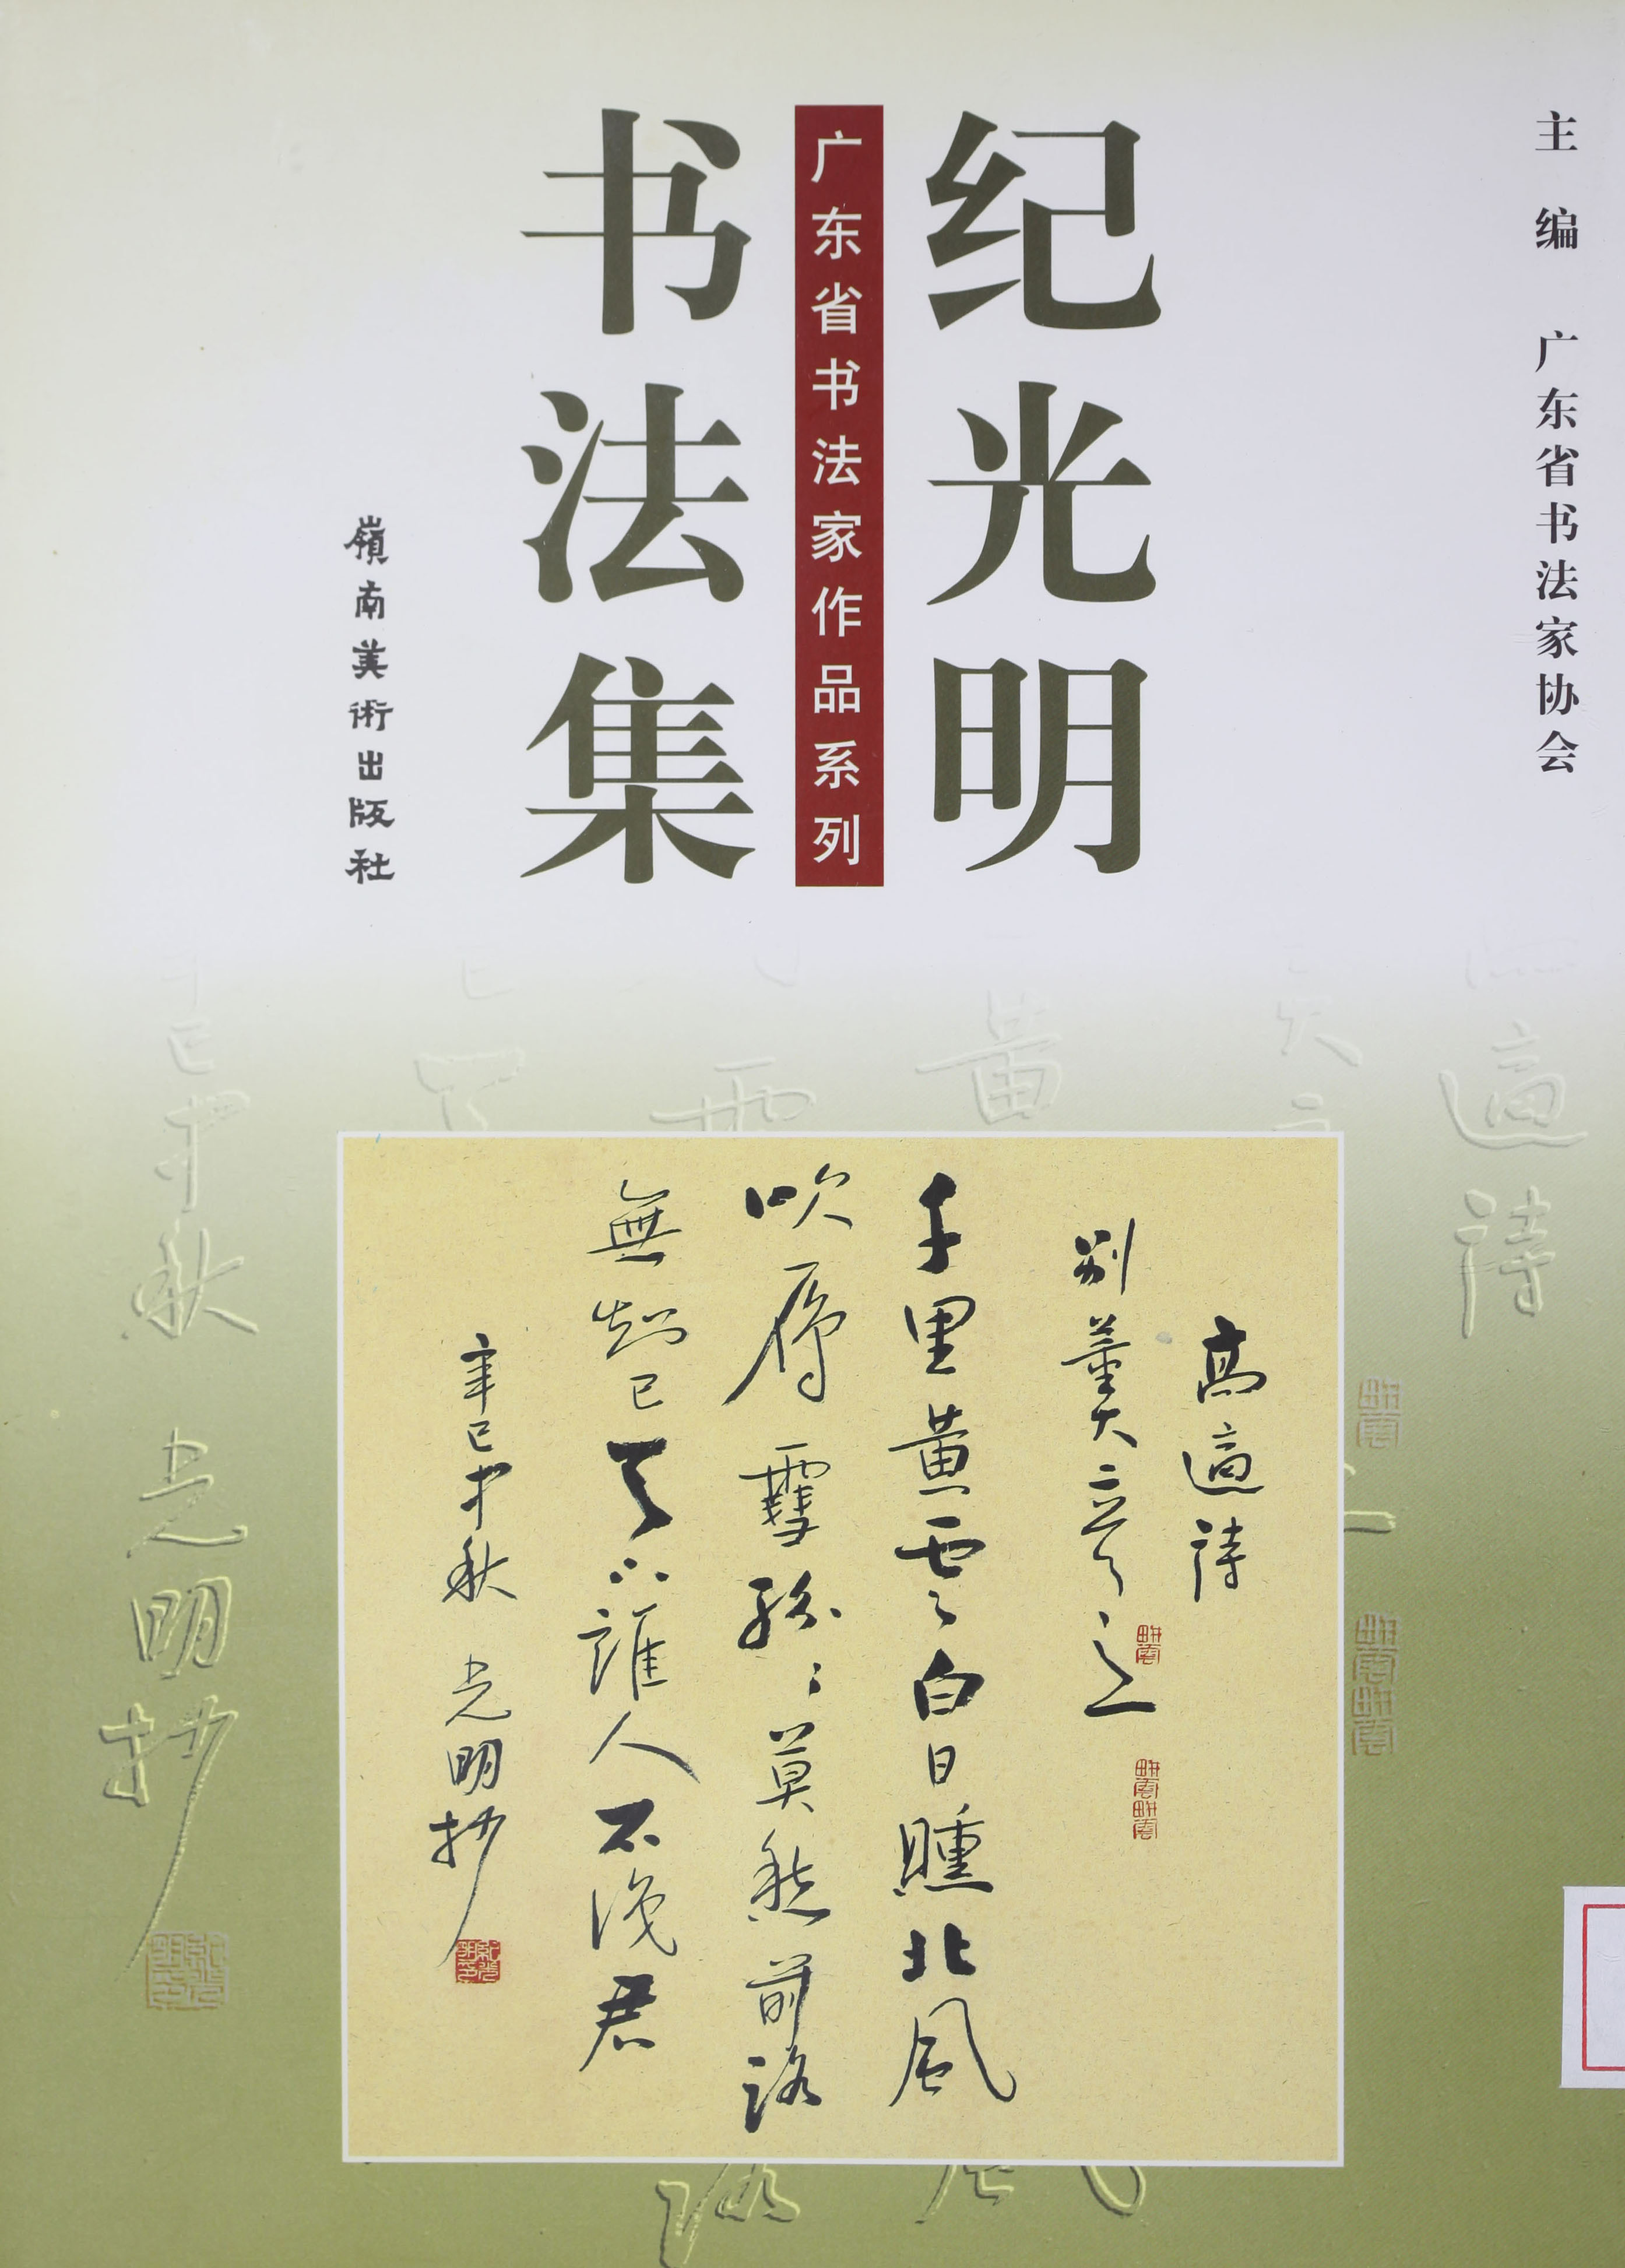 主编 广东省书法家协会
纪光明
广东省书法家作品系列
书法集
嶺南美術出版社
高適詩
別董大二首之一
千里黄雲白日曛北風
吹鴈雪紛紛莫愁前路
無知己天下誰人不識君
辛巳中秋 光明抄